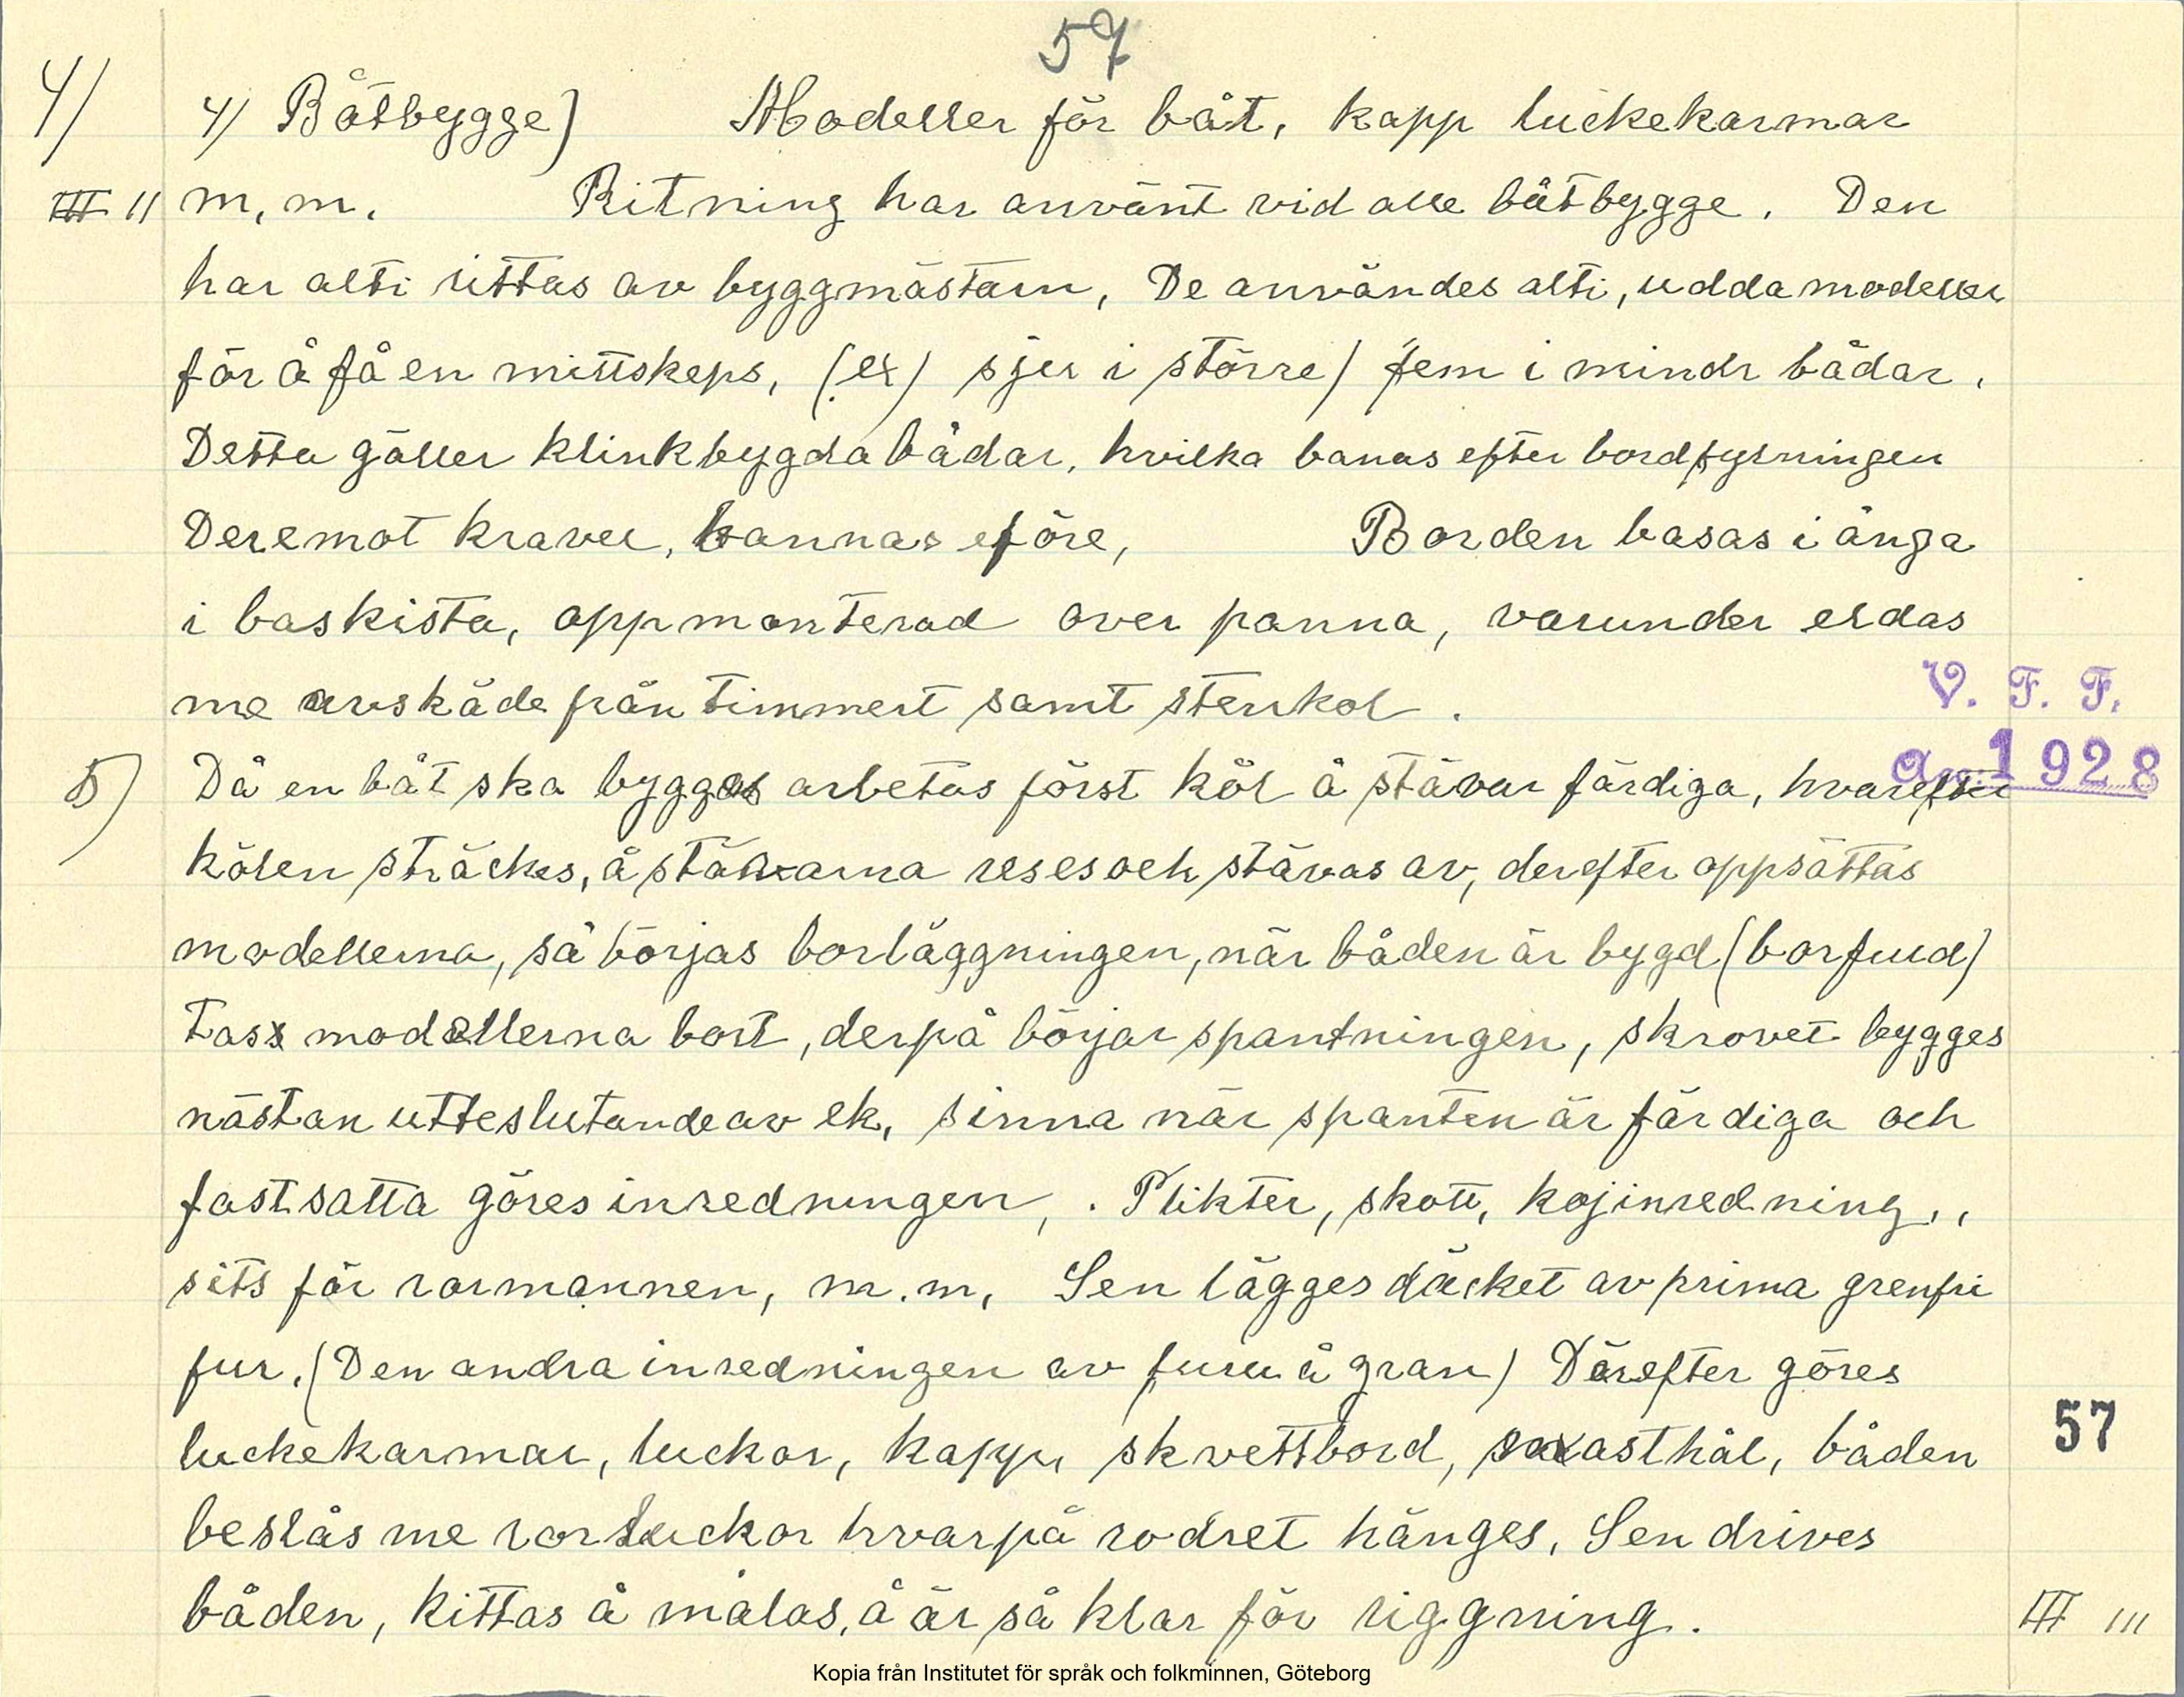 57
4) 4) Båtbygge) Modeller för båt, kapp luckekarmar
III II m, m. Ritning har använt vid alle båtbygge. Den
har alti rittas av byggmästarn, De användes alti, udda modeller
för å få en mittskeps, (ex) sju i större) fem i mindr bådar.
Detta gäller klinkbygda bådar, hvilka banas efter bordfyrningen
Deremot kravel, bannas eföre, Borden basas i ånga
i baskista, oppmonterad over panna, varunder eldas
me avskåde från timmert samt stenkol.
V. F. F.
5) Då en båt ska bygges arbetas först köl å stävar färdiga, hvarefter
1928
kölen sträckes, å stävarna reses och stävas av, derefter oppsättas
modellerna, så börjas borläggningen, när båden är bygd (borfud)
Tass modellerna bort, derpå börjar spantningen, skrovet bygges
nästan utteslutande av ek, sinna när spanten är färdiga och
fastsatta göres inredningen, . Plikter, skott, kojinredning,,
sits för rormannen, m.m, Sen lägges däcket av prima grenfri
fur. (Den andra inredningen av furu å gran) Därefter göres
luckekarmar, luckor, kapp, skvettbord, masthål, båden
57
beslås me rorluckor hvarpå rodret hänges, Sen drives
båden, kittas å målas, å är så klar för riggning.
III III
Kopia från Institutet för språk och folkminnen, Göteborg